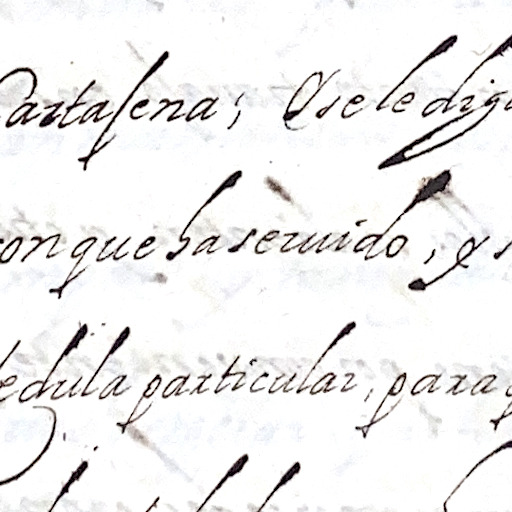 Cartagena; Y se le dig
con que ha seruido, y s
Cedula particular, para q